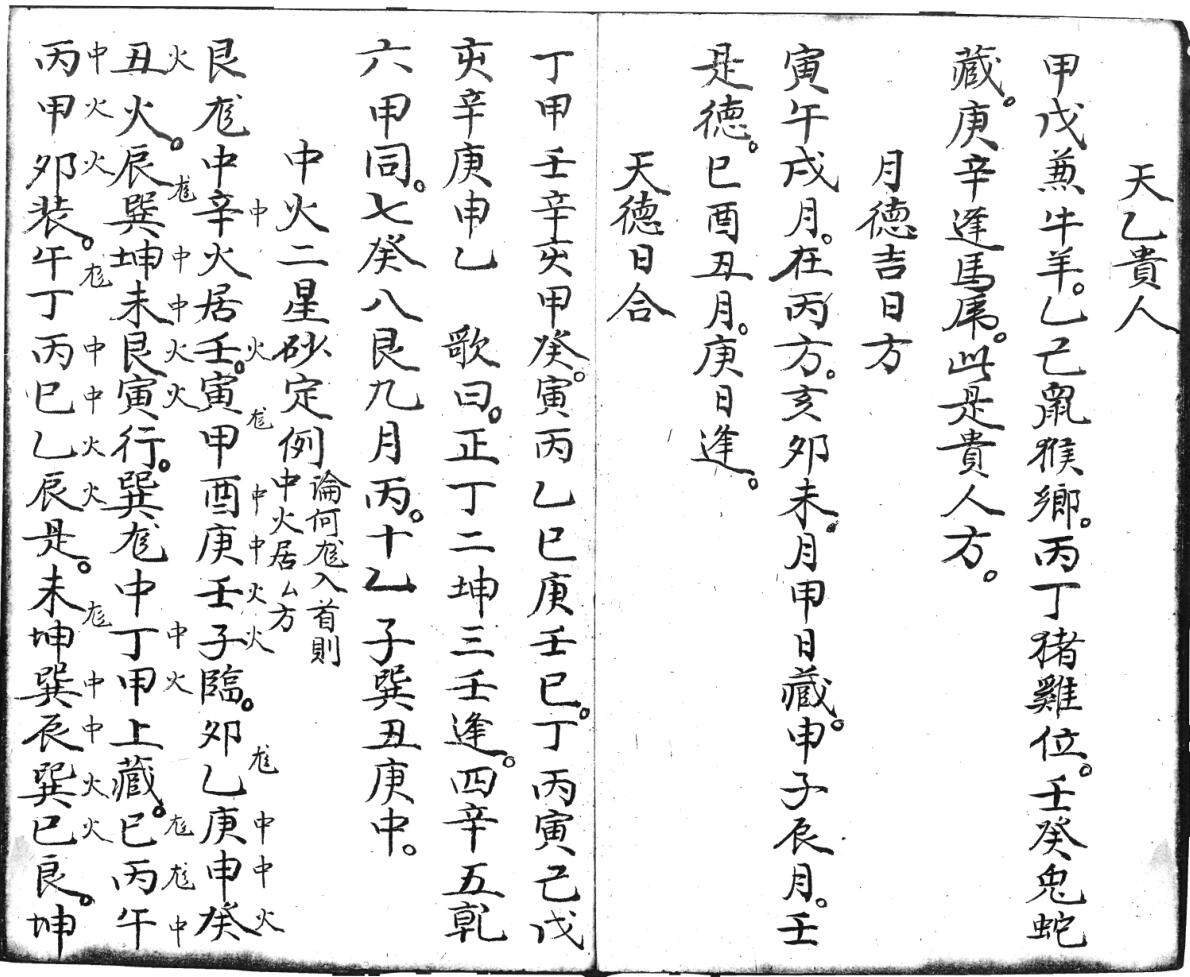 天乙貴人
甲戊兼牛羊。乙己鼠猴鄉。丙丁猪雞位。壬癸兎蛇
藏。庚辛逢馬虎。此是貴人方。
月德吉日方
寅午戌月。在丙方。亥卯未。月甲日藏。申子辰月。壬
是德。巳酉丑月。庚日逢。
天德日合
丁甲壬辛亥甲癸。寅丙乙巳庚壬巳。丁丙寅己戊
亥辛庚申乙 歌曰。正丁二坤三壬逢。四辛五乹
六甲同。七癸八艮九月丙。十乙子巽丑庚中。
中火二星砂定例
論何尨入首則
中火居厶方
中火尨中中火火尨中中火
艮尨中辛火居壬。寅甲酉庚壬子臨。卯乙庚申癸
火尨中中火火中火尨尨中
丑火。辰巽坤未艮寅行。巽尨中丁甲上藏。巳丙午
中火火尨中中火火尨中中火火
丙甲卯装。午丁丙巳乙辰是。未坤巽辰巽巳艮。坤